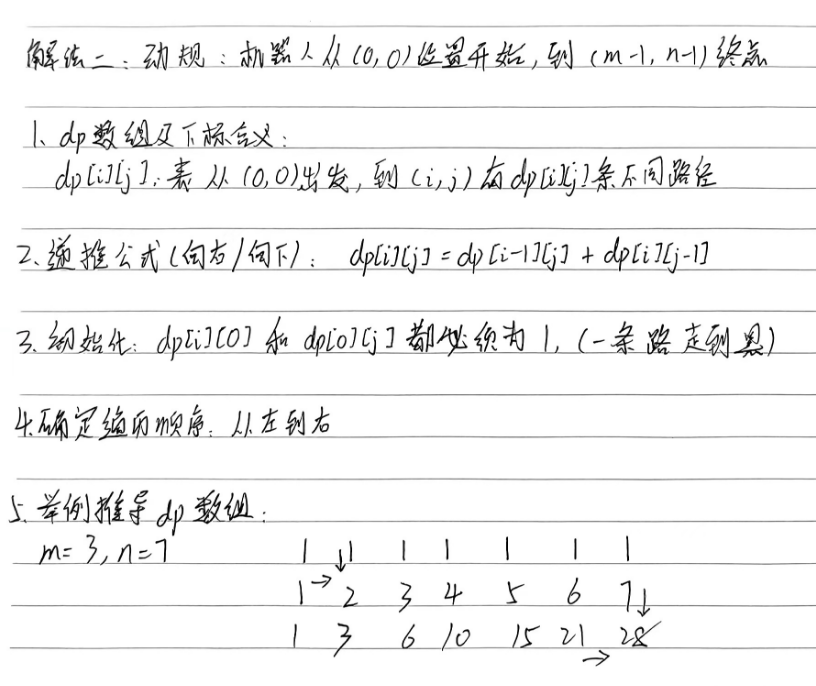 解法二:动规:机器人从(0,0)位置开始,到(m-1,n-1)终点
1、dp数组及下标含义:
dp[i][j]:表从(0,0)出发,到(i,j)有dp[i][j]条不同路径
2、递推公式(向右/向下): dp[i][j]=dp[i-1][j]+dp[i][j-1]
3、初始化:dp[i][0]和dp[0][j]都必须为1,(一条路走到黑)
4、确定遍历顺序:从左到右
5、举例推导dp数组:
m=3,n=7 1 ↓1 1 1 1 1 1
1 → 2 3 4 5 6 7↓
1 3 6 10 15 21 → 28